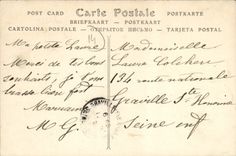 POST CARD Carte Postale POSTKARTE
BRIEFKAART POSTKARTE
CARTOLINA POSTALE ОТКРЫТОЕ ПИСЬМО TARJETA POSTAL
14
Ma petite Laure
Merci de tes bons
souhaits, je t'em
brasse bien fort
Marraine
M G.
Mademoiselle
Laure
124 route nationale
Graville Ste Honorine
Seine inf